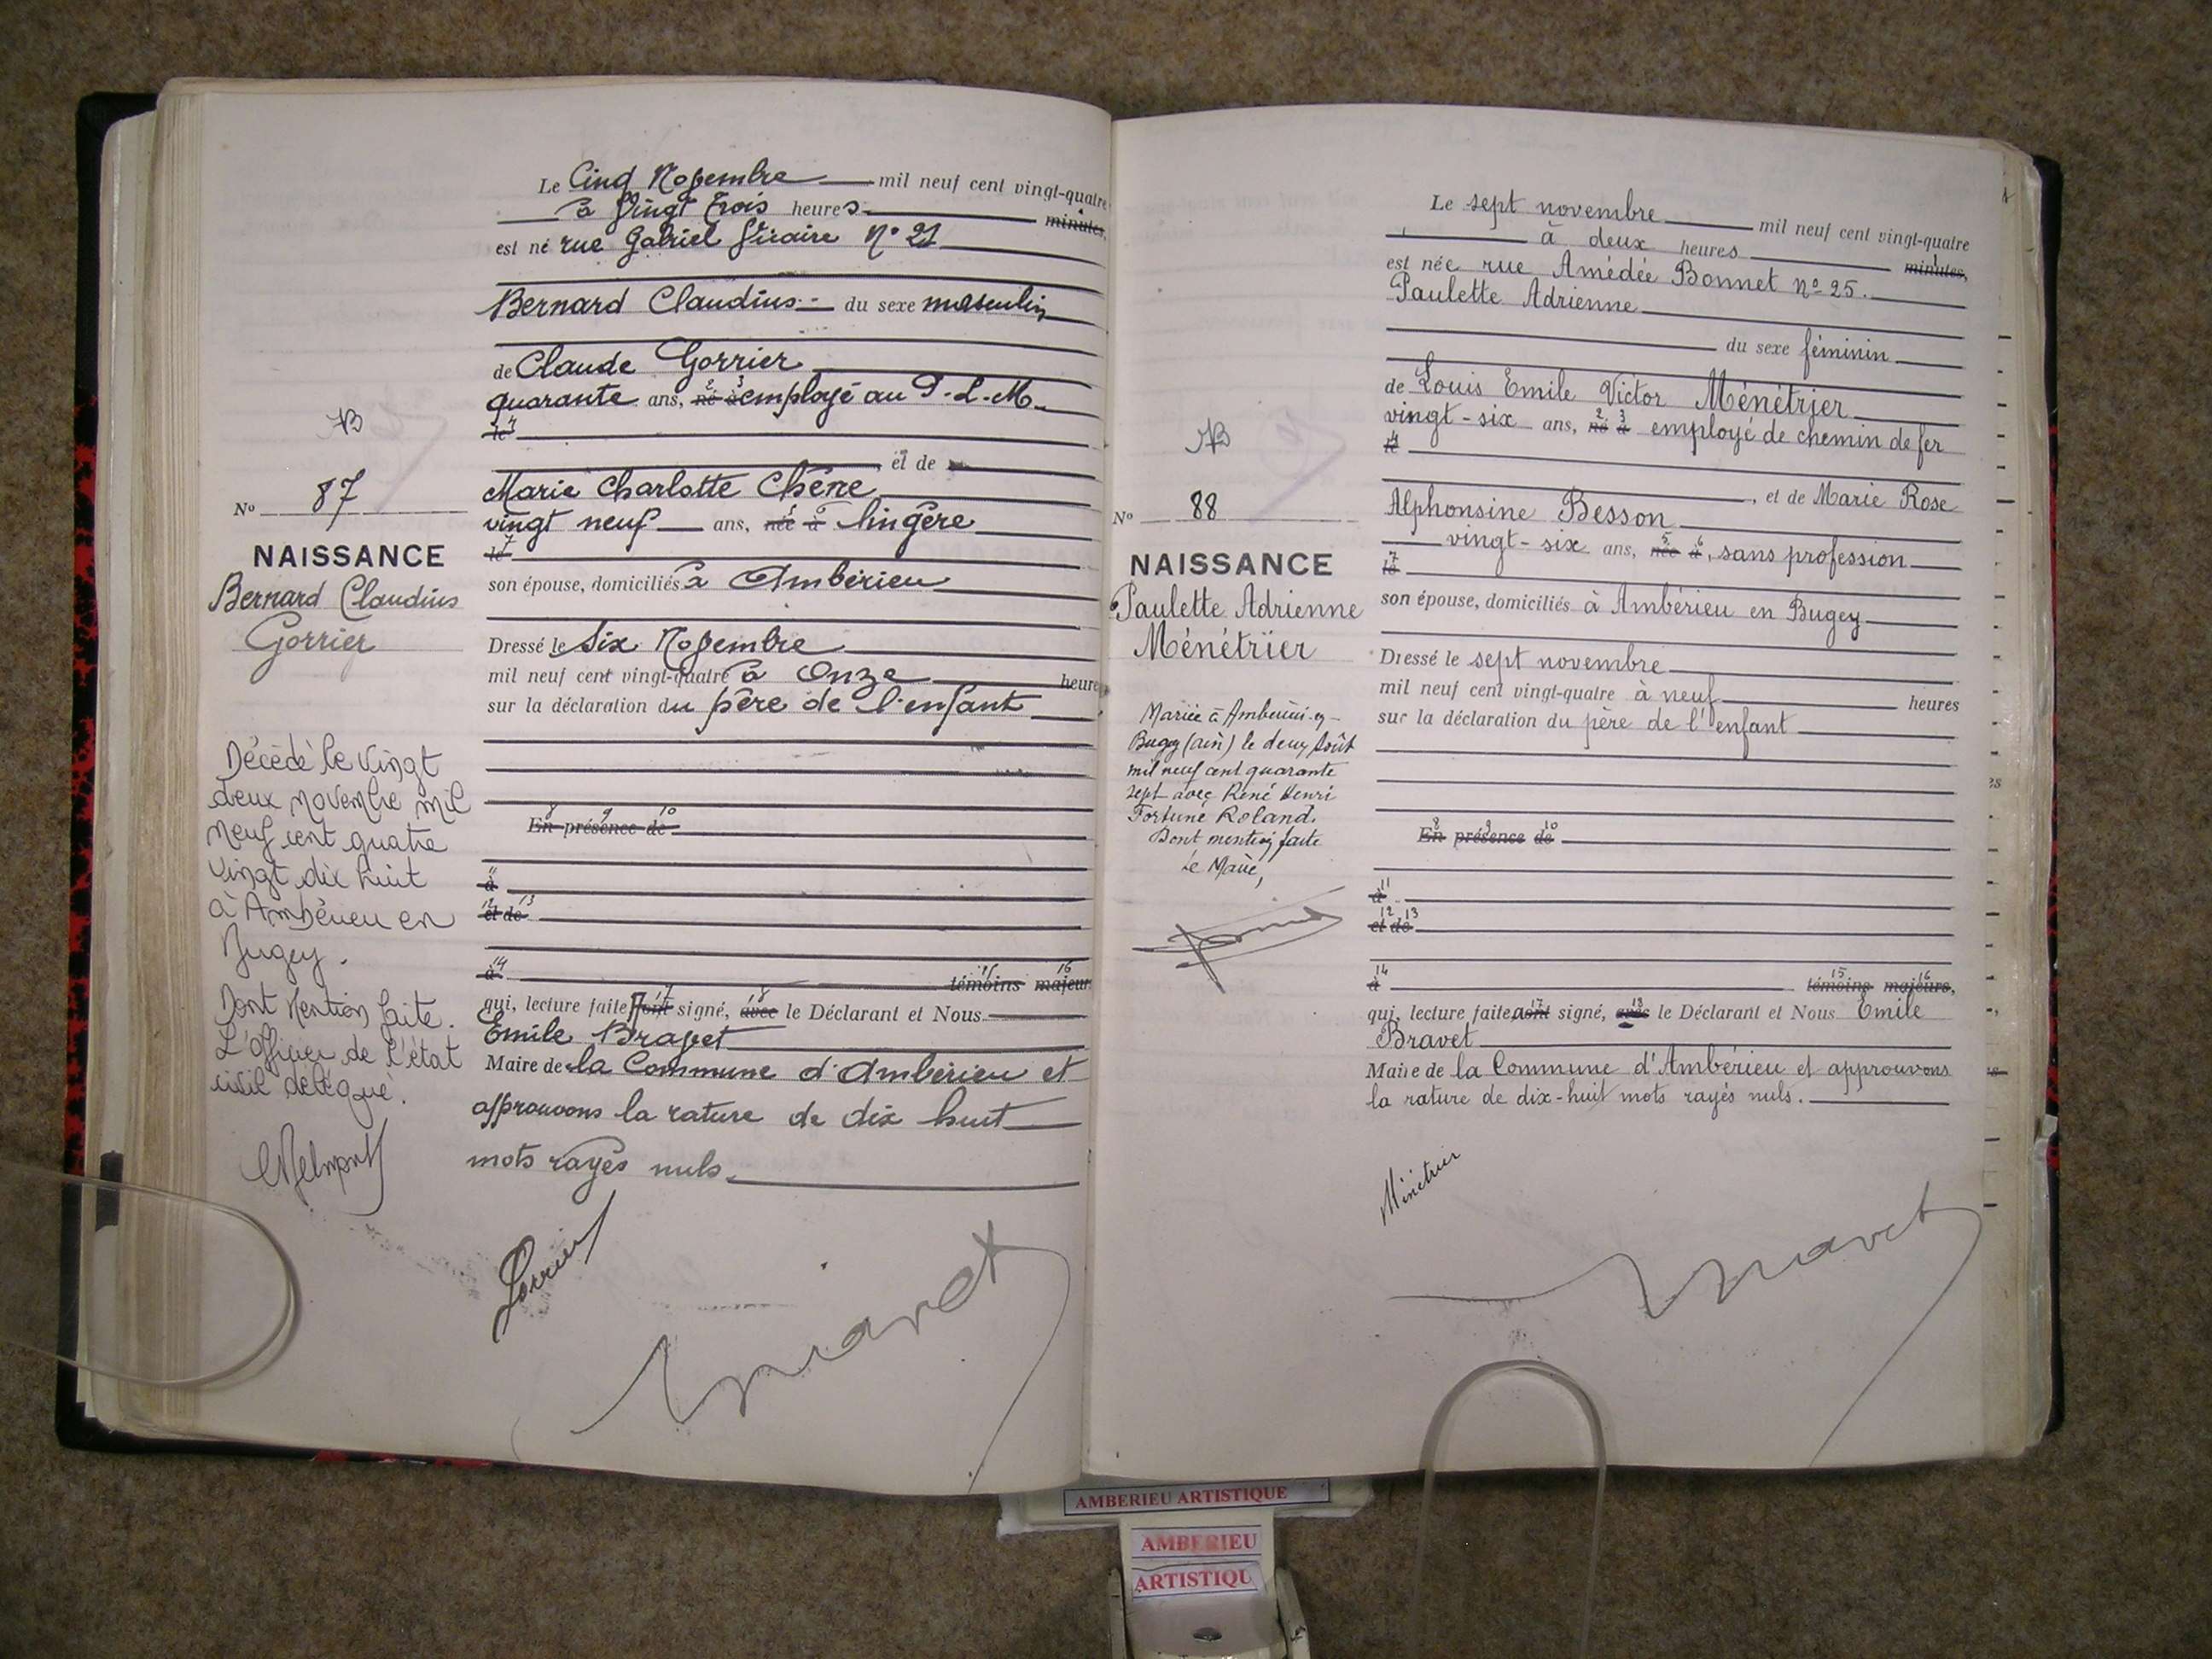 Le Cinq Novembre mil neuf cent vingt-quatre
à Vingt Trois heures minutes,
est né rue Gabriel Vicaire N° 21
Bernard Claudius du sexe masculin
de Claude Gorrier
quarante ans, né à employé au P.L.M.
le
et de
Marie Charlotte Chêne
vingt neuf ans, née à lingère
le
son épouse, domiciliés à Ambérieu
Dressé le Six Novembre
mil neuf cent vingt-quatre à Onze heures
sur la déclaration du père de l'enfant
En présence de
à
et de
à témoins majeurs
qui, lecture faite, ont signé, avec le Déclarant et Nous
Emile Bravet
Maire de la Commune d'Ambérieu et
approuvons la rature de dix huit
mots rayés nuls.
Gorrier
Bravet
N° 87
NAISSANCE
Bernard Claudius
Gorrier
Décédé le vingt
deux novembre mil
neuf cent quatre
vingt dix huit
à Ambérieu en
Bugey.
Dont Mention faite.
L'officier de l'état
civil délégué.
Le sept novembre mil neuf cent vingt-quatre
à deux heures minutes,
est née rue Amédée Bonnet n° 25.
Paulette Adrienne
du sexe féminin
de Louis Emile Victor Ménétrier
vingt-six ans, né à employé de chemin de fer
le
, et de Marie Rose
Alphonsine Besson
vingt-six ans, née à, sans profession
le
son épouse, domiciliés à Ambérieu en Bugey
Dressé le sept novembre
mil neuf cent vingt-quatre à neuf heures
sur la déclaration du père de l'enfant
En présence de
à
et de
à témoins majeurs,
qui, lecture faite, ont signé, avec le Déclarant et Nous Emile
Bravet
Maire de la Commune d'Ambérieu et approuvons
la rature de dix-huit mots rayés nuls.
Ménétrier
Bravet
N° 88
NAISSANCE
Paulette Adrienne
Ménétrier
Mariée à Ambérieu-en-
Bugey (ain) le deux Août
mil neuf cent quarante
sept avec René Henri
Fortuné Roland.
Dont mention faite
Le Maire,
AMBERIEU ARTISTIQUE
AMBERIEU
ARTISTIQU